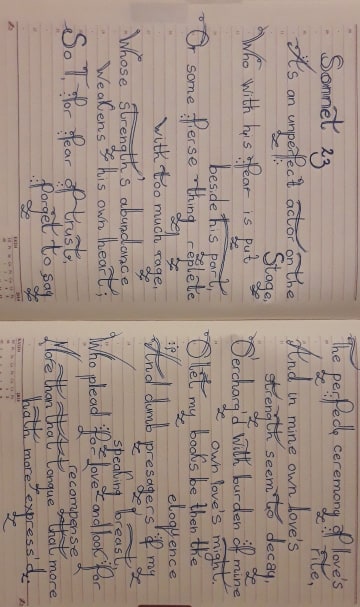 Sonnet 23
As an unperfect actor on the
Stage,
Who with his fear is put
beside his part,
Or some fierse thing replete
with too much rage,
Whose strength's abundance
weakens his own heart;
So I, for fear of trust,
forget to say
The perfect ceremony of love's
rite,
And in mine own love's
strength seem to decay,
O'ercharg'd with burden of mine
own love's might.
O let my books be then the
eloquence
And dumb presagers of my
speaking breast,
Who plead for love and look for
recompense,
More than that tongue that more
hath more express'd.